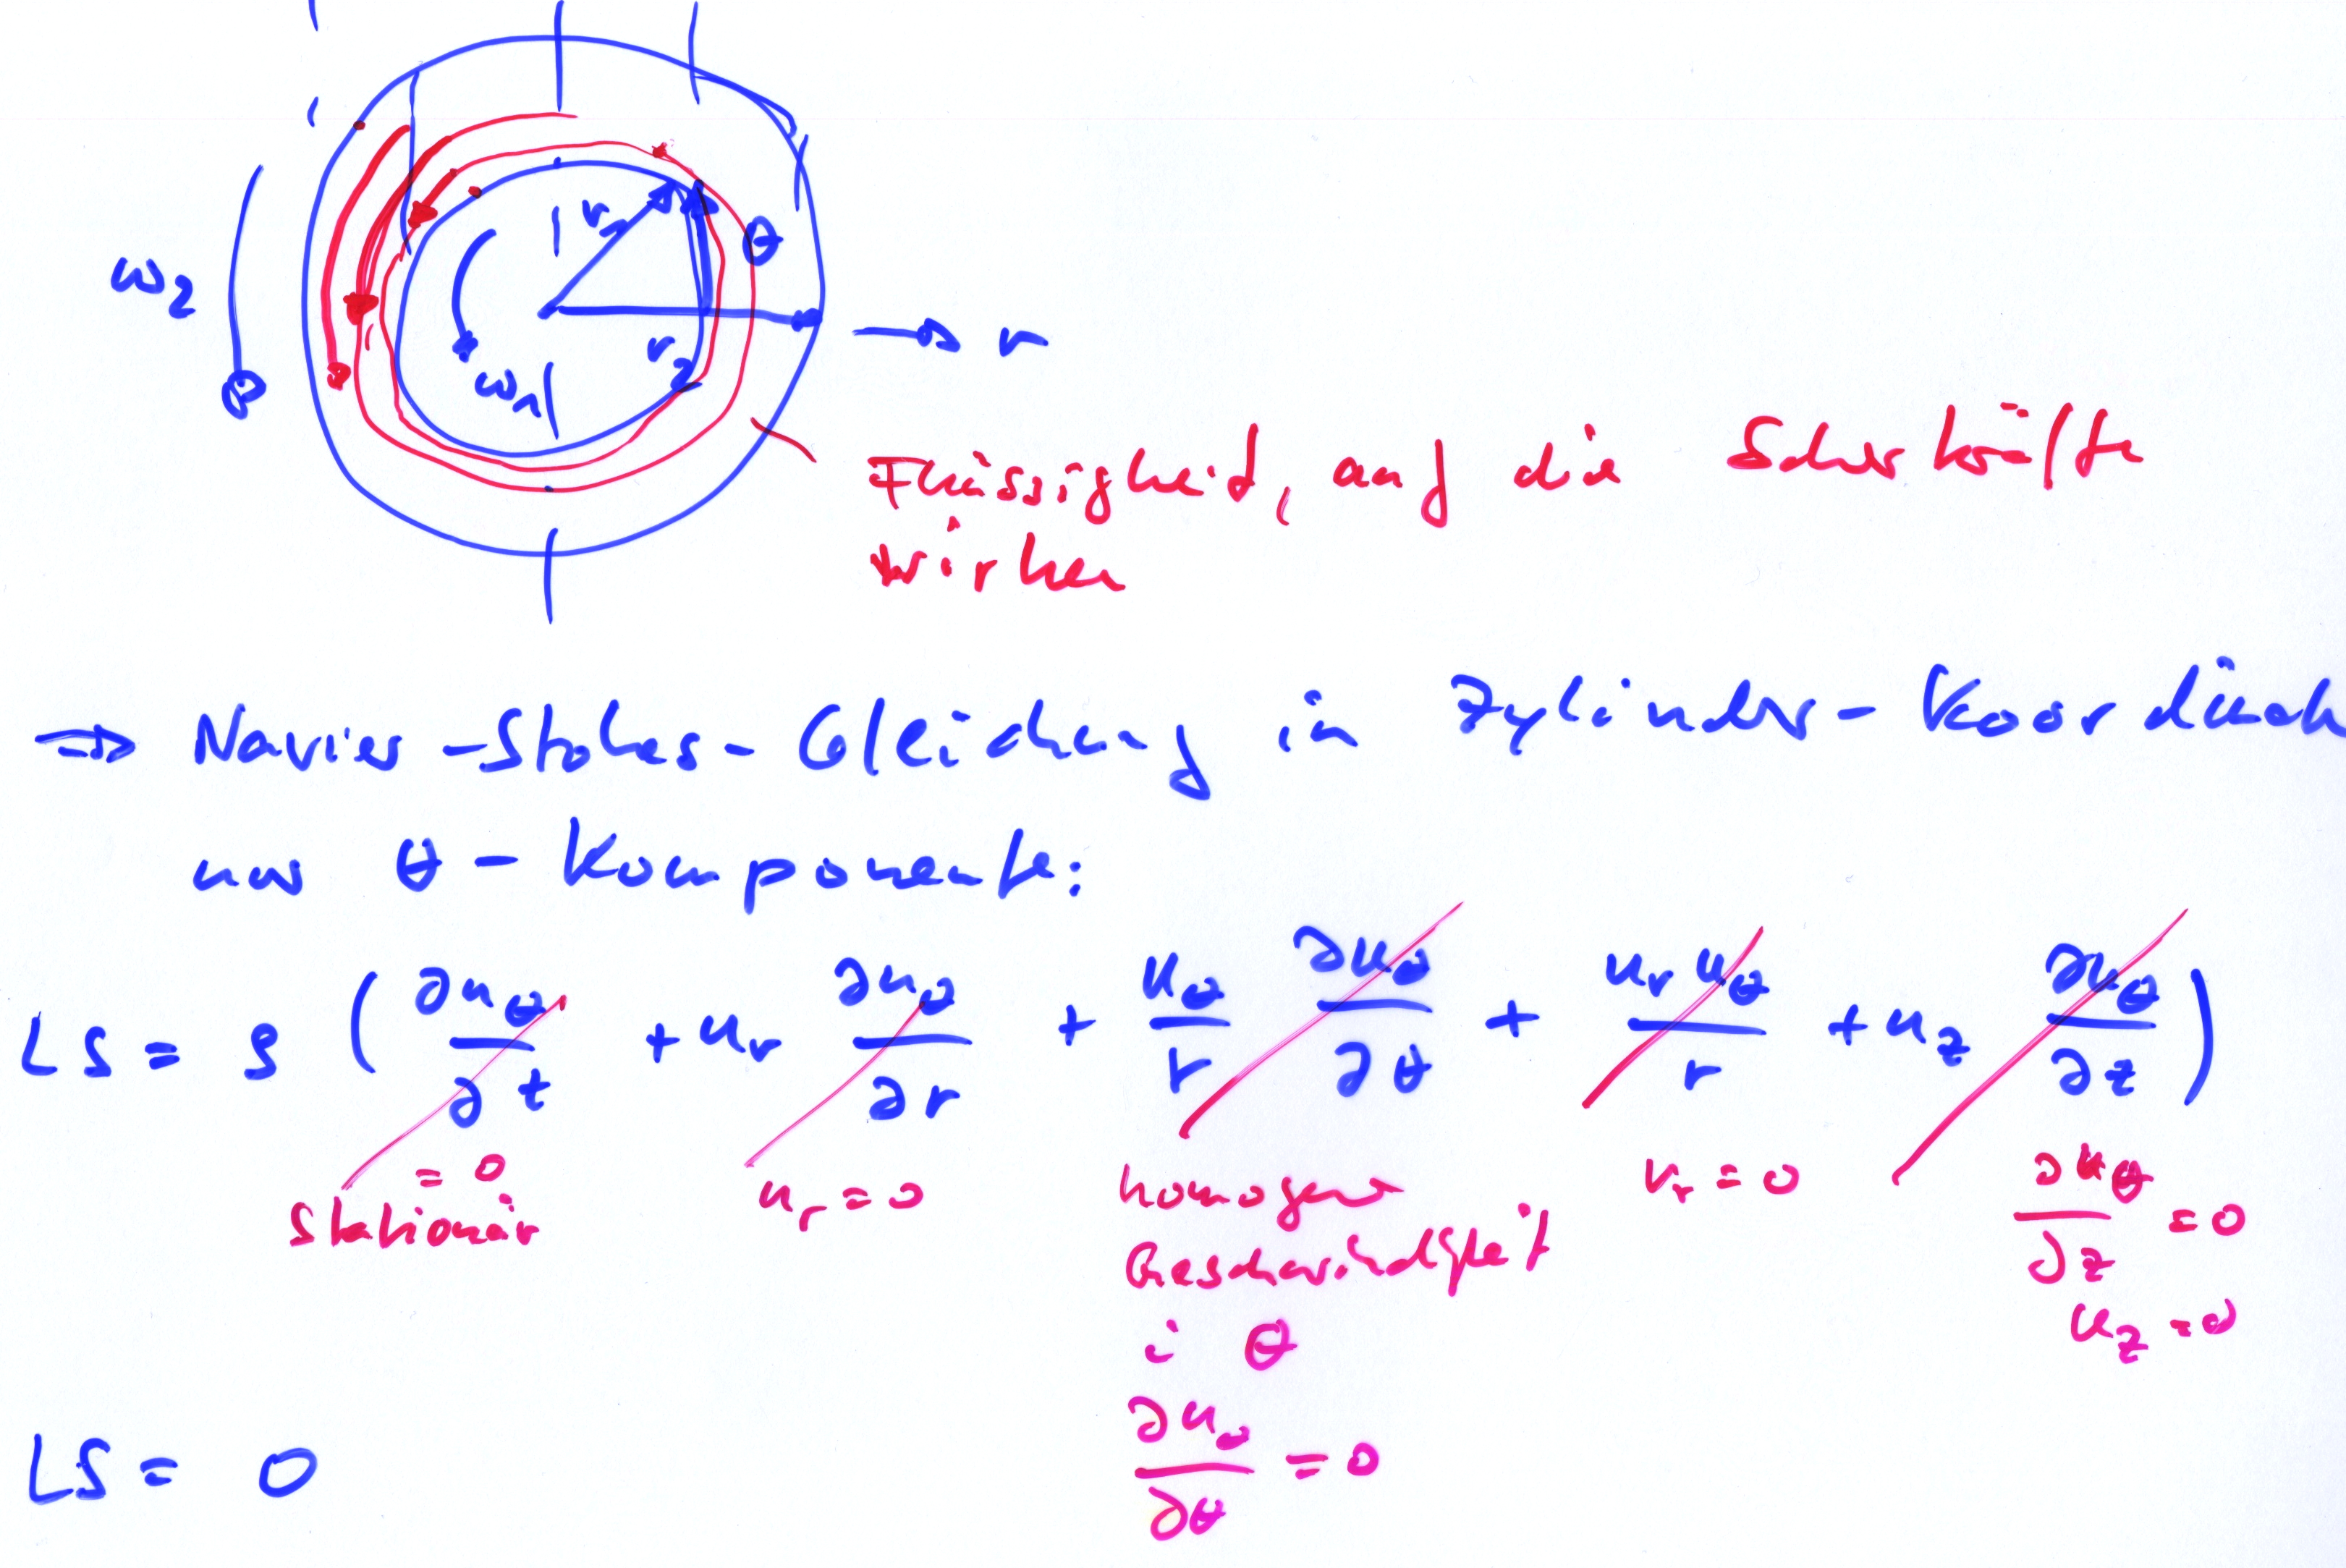 ω₂
r₁
θ
r₂
ω₁
r
Flüssigkeit, auf die Scherkräfte
wirken
→ Navier-Stokes-Gleichung in Zylinder-Koordinaten
nur θ-Komponente:
LS = ρ ( ∂u_θ/∂t + u_r ∂u_θ/∂r + u_θ/r ∂u_θ/∂θ + u_r u_θ/r + u_z ∂u_θ/∂z )
= 0
stationär
u_r = 0
homogene
Geschwindigkeit
i θ
∂u_θ/∂θ = 0
v_r = 0
∂u_θ/∂z = 0
u_z = 0
LS = 0